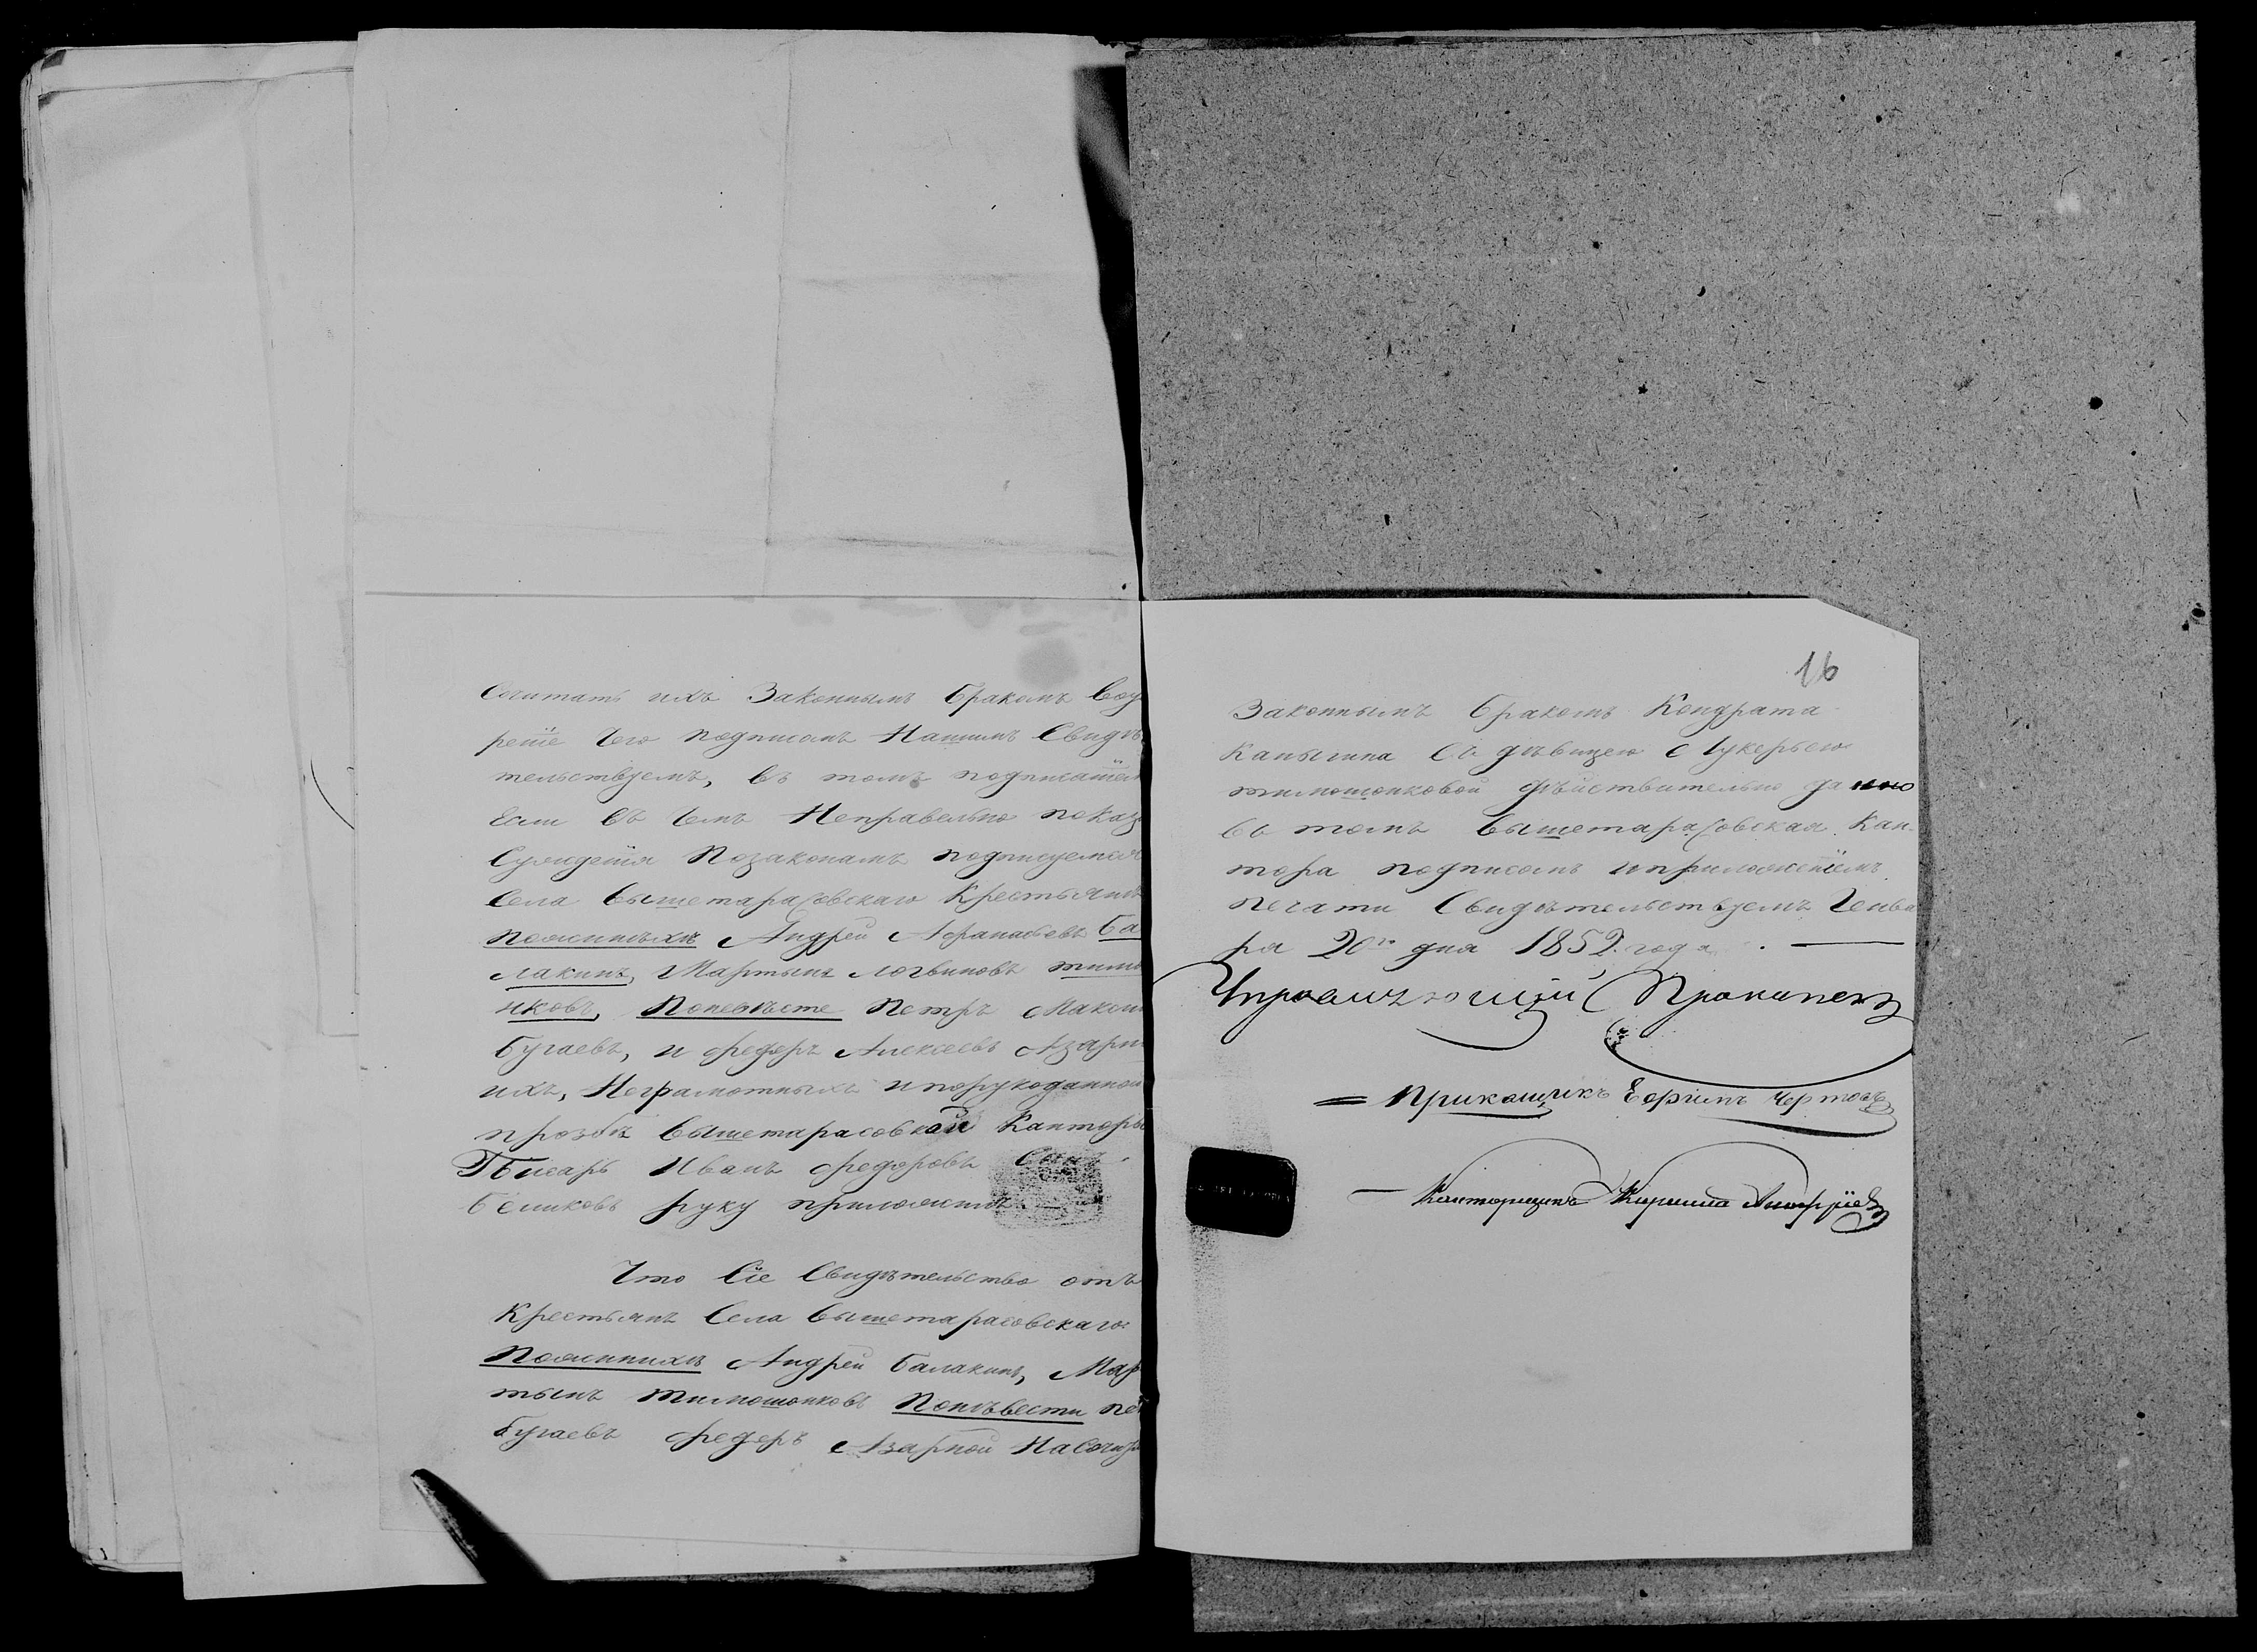 Сочитать ихъ Законнымъ бракомъ Воу
реніе чего подписомъ Нашимъ Свидѣ
тельствуемъ, въ томъ подписатели
Если въ чемъ Неправельно показ
Сужденія Позаконамъ подписуемся
Села вышетарасовскаго Крестьяни
Пожинихѣ Андрей Афанасьевъ Ба
лакинъ, Мартынъ Логвиновъ тимо
нковъ, Поневѣсте Петръ Маком
Бугаевъ, и федоръ Алексеевъ Азарн
ихъ, Неграмотныхъ ипорукоданной
прозбѣ вышетарасовской Канторы
Писарь Иванъ федоровъ Сынъ
Бѣликовъ руку приложилъ
Что Сіе Свидѣтельство отъ
Крестьянъ Села вышетарасовскаго
Пожинихѣ Андрей Балакинъ, Мар
тынъ тимошонковъ Понѣвести пе
Бугаевъ федеръ Азарной На Сочи
16
Законнымъ бракомъ Кондрата
Капылина Съ дѣвицею Лукерьею
тимошонковой дѣйствительно дано
въ томъ вышетарасовская Кан
тора подписомъ иприложеніемъ
печати Свидѣтельствуемъ Генва
ря 20го дня 1852 года
Управляющій
Прикащикъ Ефимъ Чертовъ
Канторщикъ Кирила Ануфріевъ